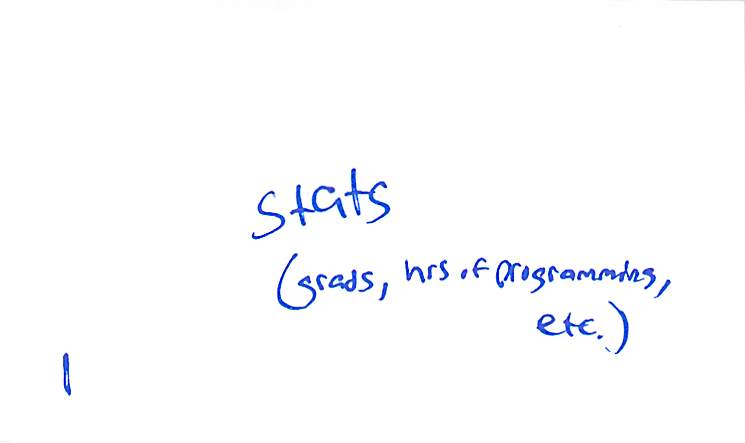 Stats
(grads, hrs of programming,
etc.)